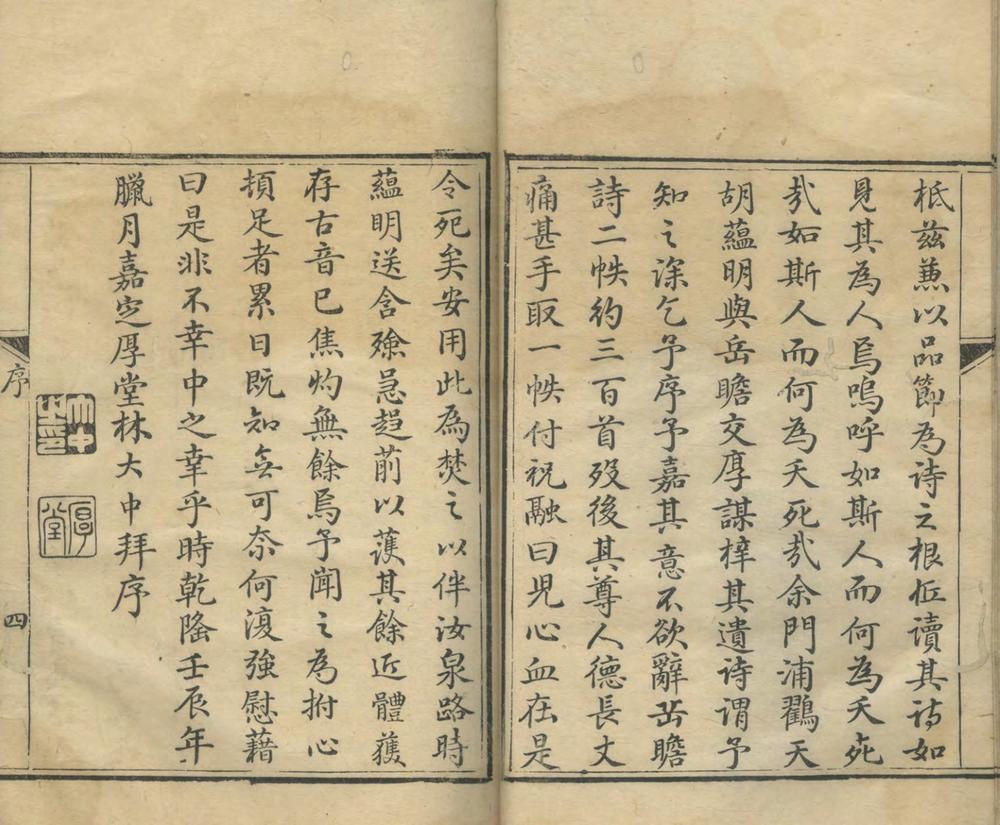 柢兹蕙以品節為诗之根柢讀其诗如
見其為人焉嗚呼如斯人而何為夭死
㢤如斯人而何為夭死㢤余門浦鸛天
胡蘊明與岳瞻交厚謀梓其遺诗謂予
知之深乞予序予嘉其意不欲辭岳瞻
詩二帙約三百首歿後其尊人德長丈
痛甚手取一帙付祝融曰児心血在是
令死矣安用此為焚之以伴汝泉路時
蘊明送含殮急趍前以護其餘近體獲
存古音已焦灼無餘焉予聞之為拊心
頓足者累日既知無可奈何復強慰藉
曰是非不幸中之幸乎時乾隆壬辰年
臘月嘉定厚堂林大中拜序
大中之印
厚堂
序
四